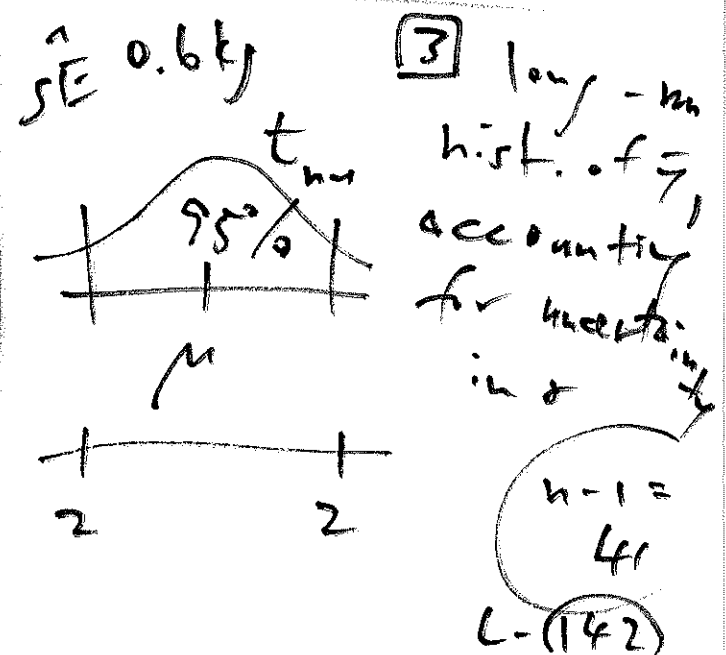 ŜE 0.6 kg
t n-1
95%
μ
2 2
3
long-run
hist. of ȳ,
accounting
for uncertainty
in σ
n-1 =
41
L-142